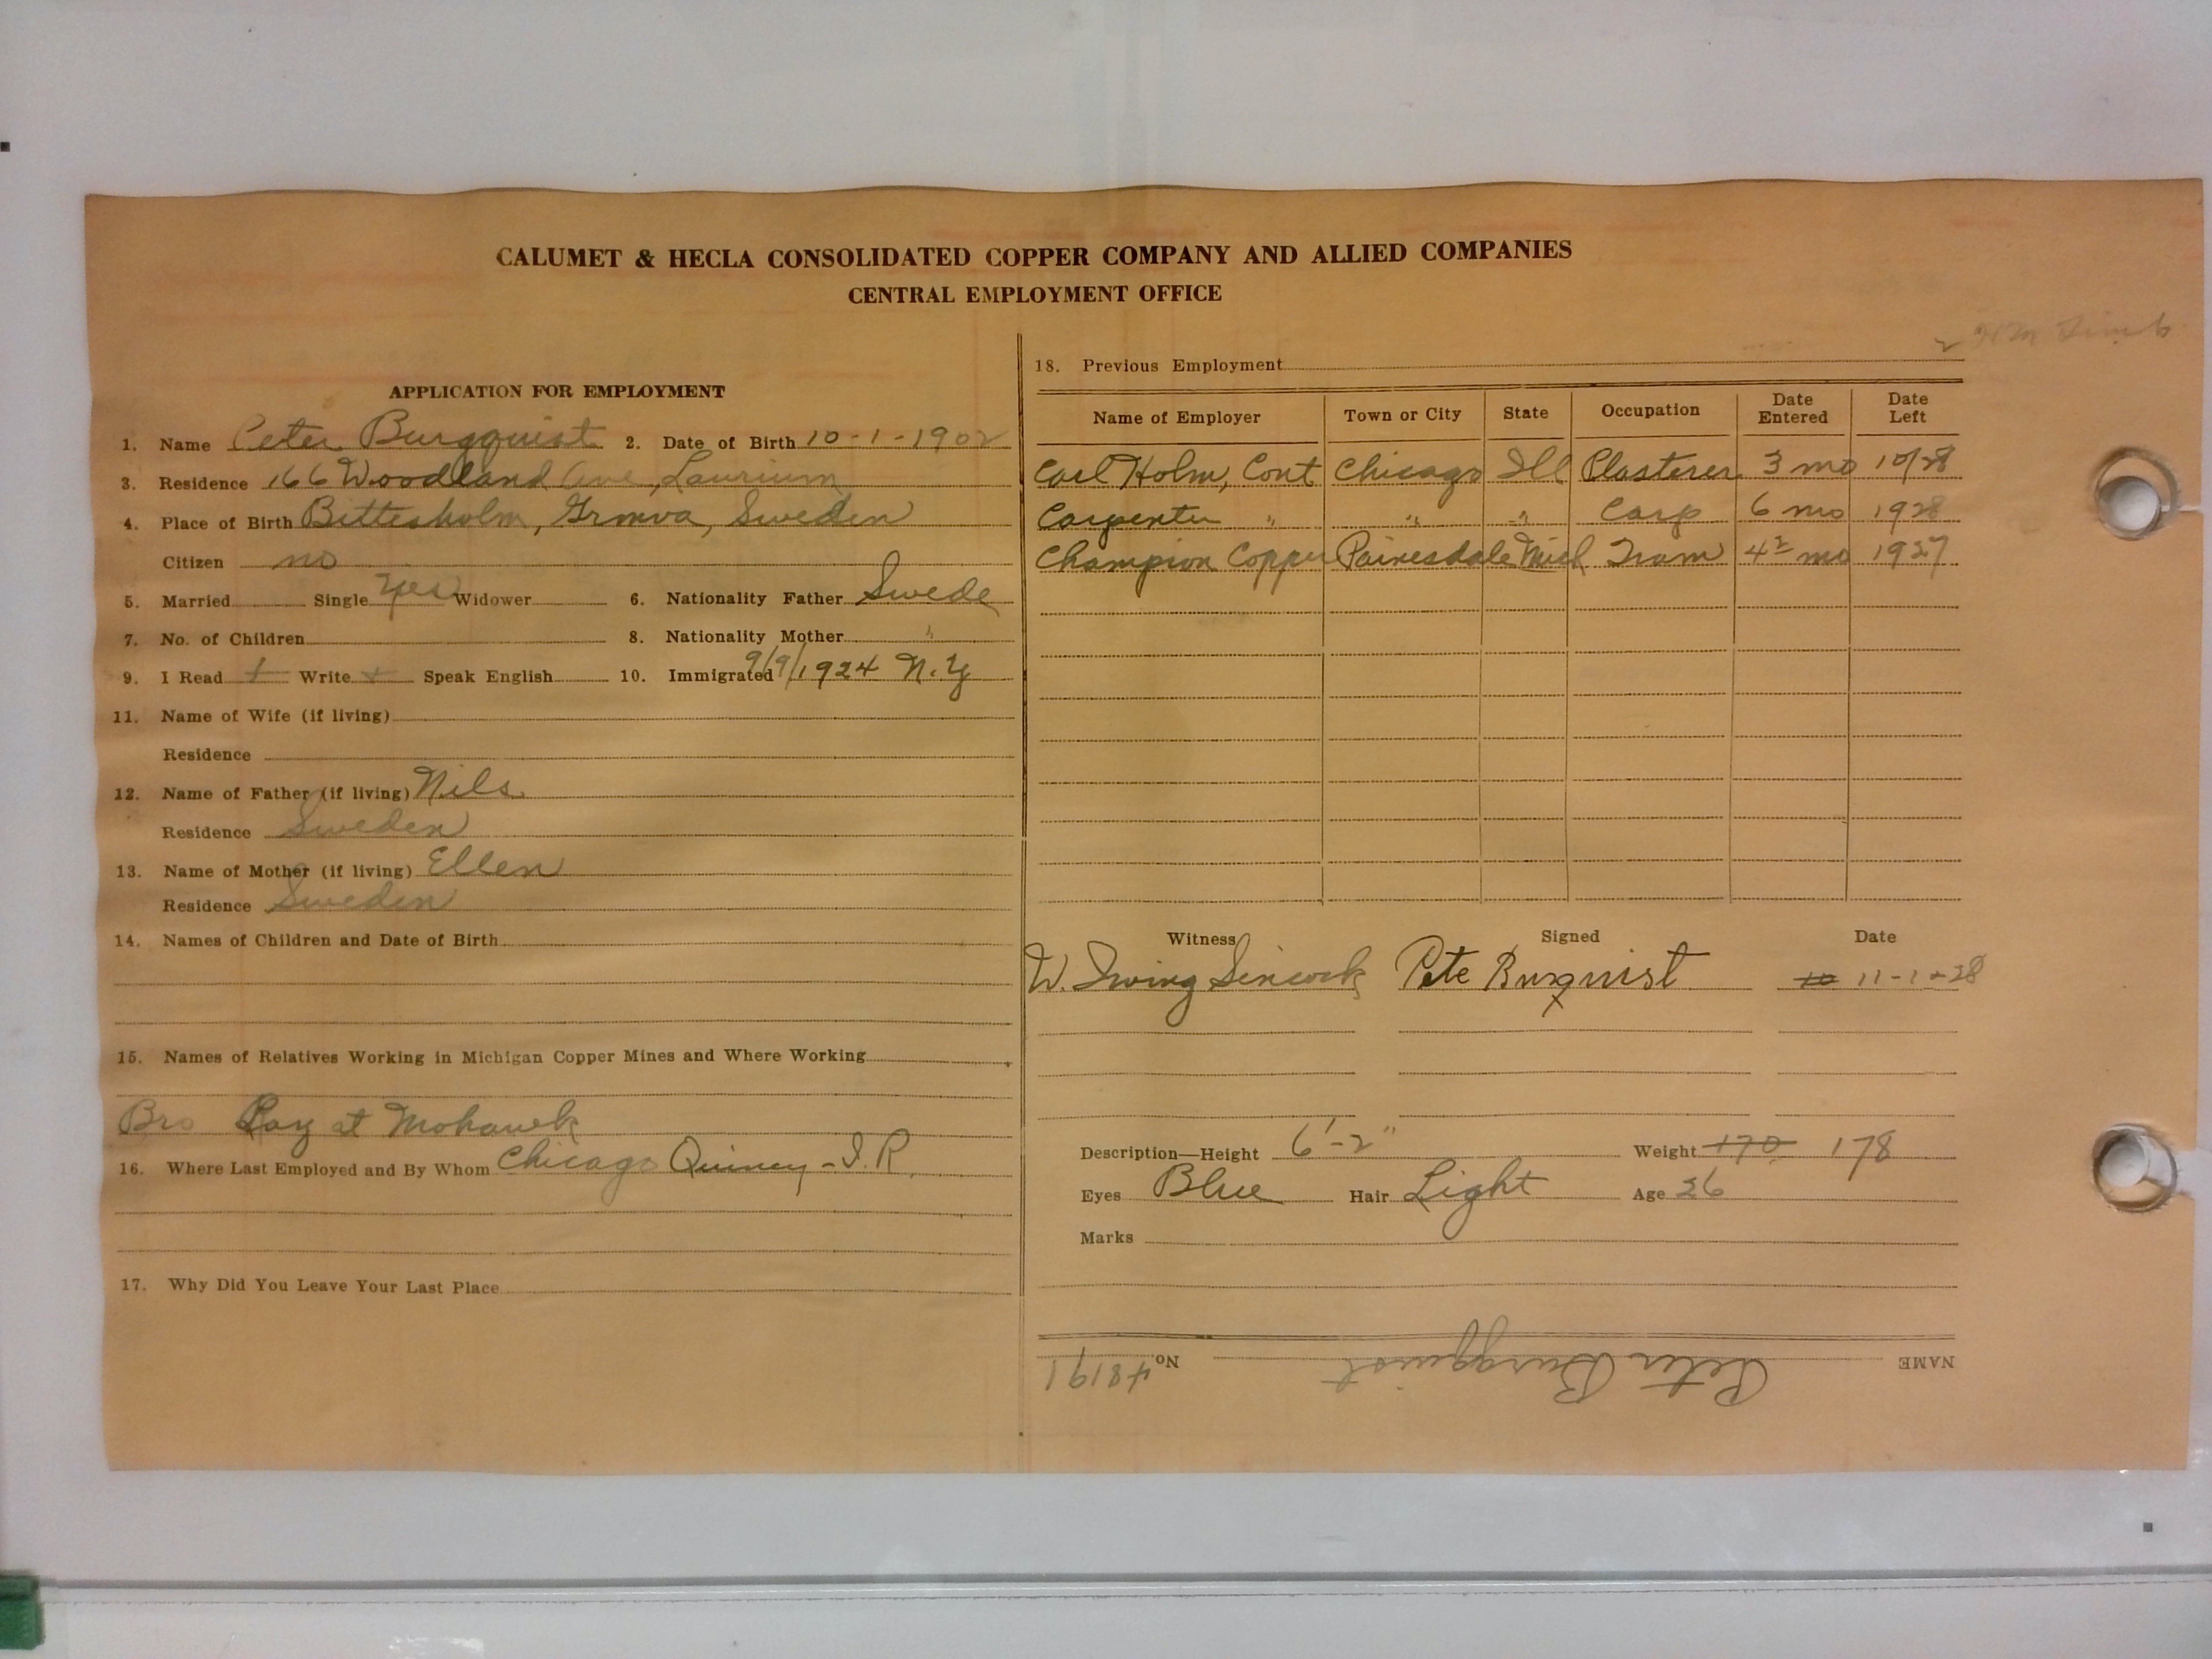 CALUMET & HECLA CONSOLIDATED COPPER COMPANY AND ALLIED COMPANIES
CENTRAL EMPLOYMENT OFFICE
APPLICATION FOR EMPLOYMENT
1. Name Peter Burgquist 2. Date of Birth 10-1-1902
3. Residence 166 Woodland Ave, Laurium
4. Place of Birth Bittesholm, Sweden
Citizen no
5. Married Single Yes Widower 6. Nationality Father Swede
7. No. of Children 8. Nationality Mother "
9. I Read + Write + Speak English 10. Immigrated 9/9/1924 N.Y
11. Name of Wife (if living)
Residence
12. Name of Father (if living) Nils
Residence Sweden
13. Name of Mother (if living) Ellen
Residence Sweden
14. Names of Children and Date of Birth
15. Names of Relatives Working in Michigan Copper Mines and Where Working
Bro Ray at Mohawk
16. Where Last Employed and By Whom Chicago Quincy - I.R.
17. Why Did You Leave Your Last Place
18. Previous Employment
Name of Employer Town or City State Occupation Date Entered Date Left
Carl Holm, Cont Chicago Ill Plasterer 3 mo 10/28
Carpenter " " " Carp 6 mo 1928
Champion Copper Painesdale Mich Tram 4½ mo 1927
Witness Signed Date
W. Irving Sincock Pete Burquist 10 11-1-28
Description—Height 6'-2" Weight 170 178
Eyes Blue Hair Light Age 26
Marks
NAME Peter Burgquist No 48191